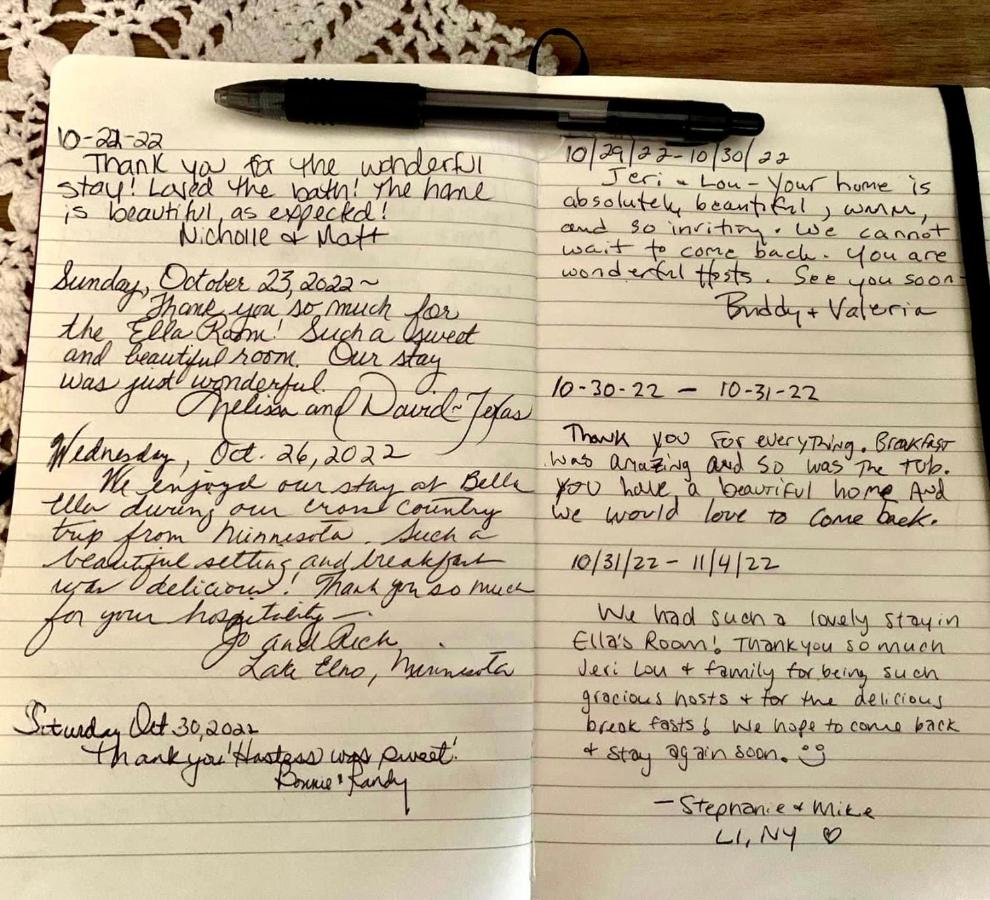 10-22-22
Thank you for the wonderful
stay! Loved the bath! The home
is beautiful, as expected!
Nicholle & Matt
Sunday, October 23, 2022~
Thank you so much for
the Ella Room! Such a sweet
and beautiful room. Our stay
was just wonderful.
Melissa and David~Texas
Wednesday, Oct. 26, 2022
We enjoyed our stay at Bella
Ella during our cross country
trip from Minnesota. Such a
beautiful setting and breakfast
was delicious! Thank you so much
for your hospitality-
Jo and Rich
Lake Elmo, Minnesota
Saturday Oct 30, 2022
Thank you! Hostess was sweet!
Bonnie & Randy
10/29/22-10/30/22
Jeri & Lou - Your home is
absolutely beautiful, warm,
and so inviting. We cannot
wait to come back. You are
wonderful Hosts. See you soon-
Buddy + Valeria
10-30-22 - 10-31-22
Thank you for everything. Breakfast
was amazing and so was the tub.
You have a beautiful home And
we would love to come back.
10/31/22 - 11/4/22
We had such a lovely stay in
Ella's Room! Thank you so much
Jeri Lou & family for being such
gracious hosts & for the delicious
break fasts! We hope to come back
& stay again soon.
-Stephanie & Mike
LI, NY ♡